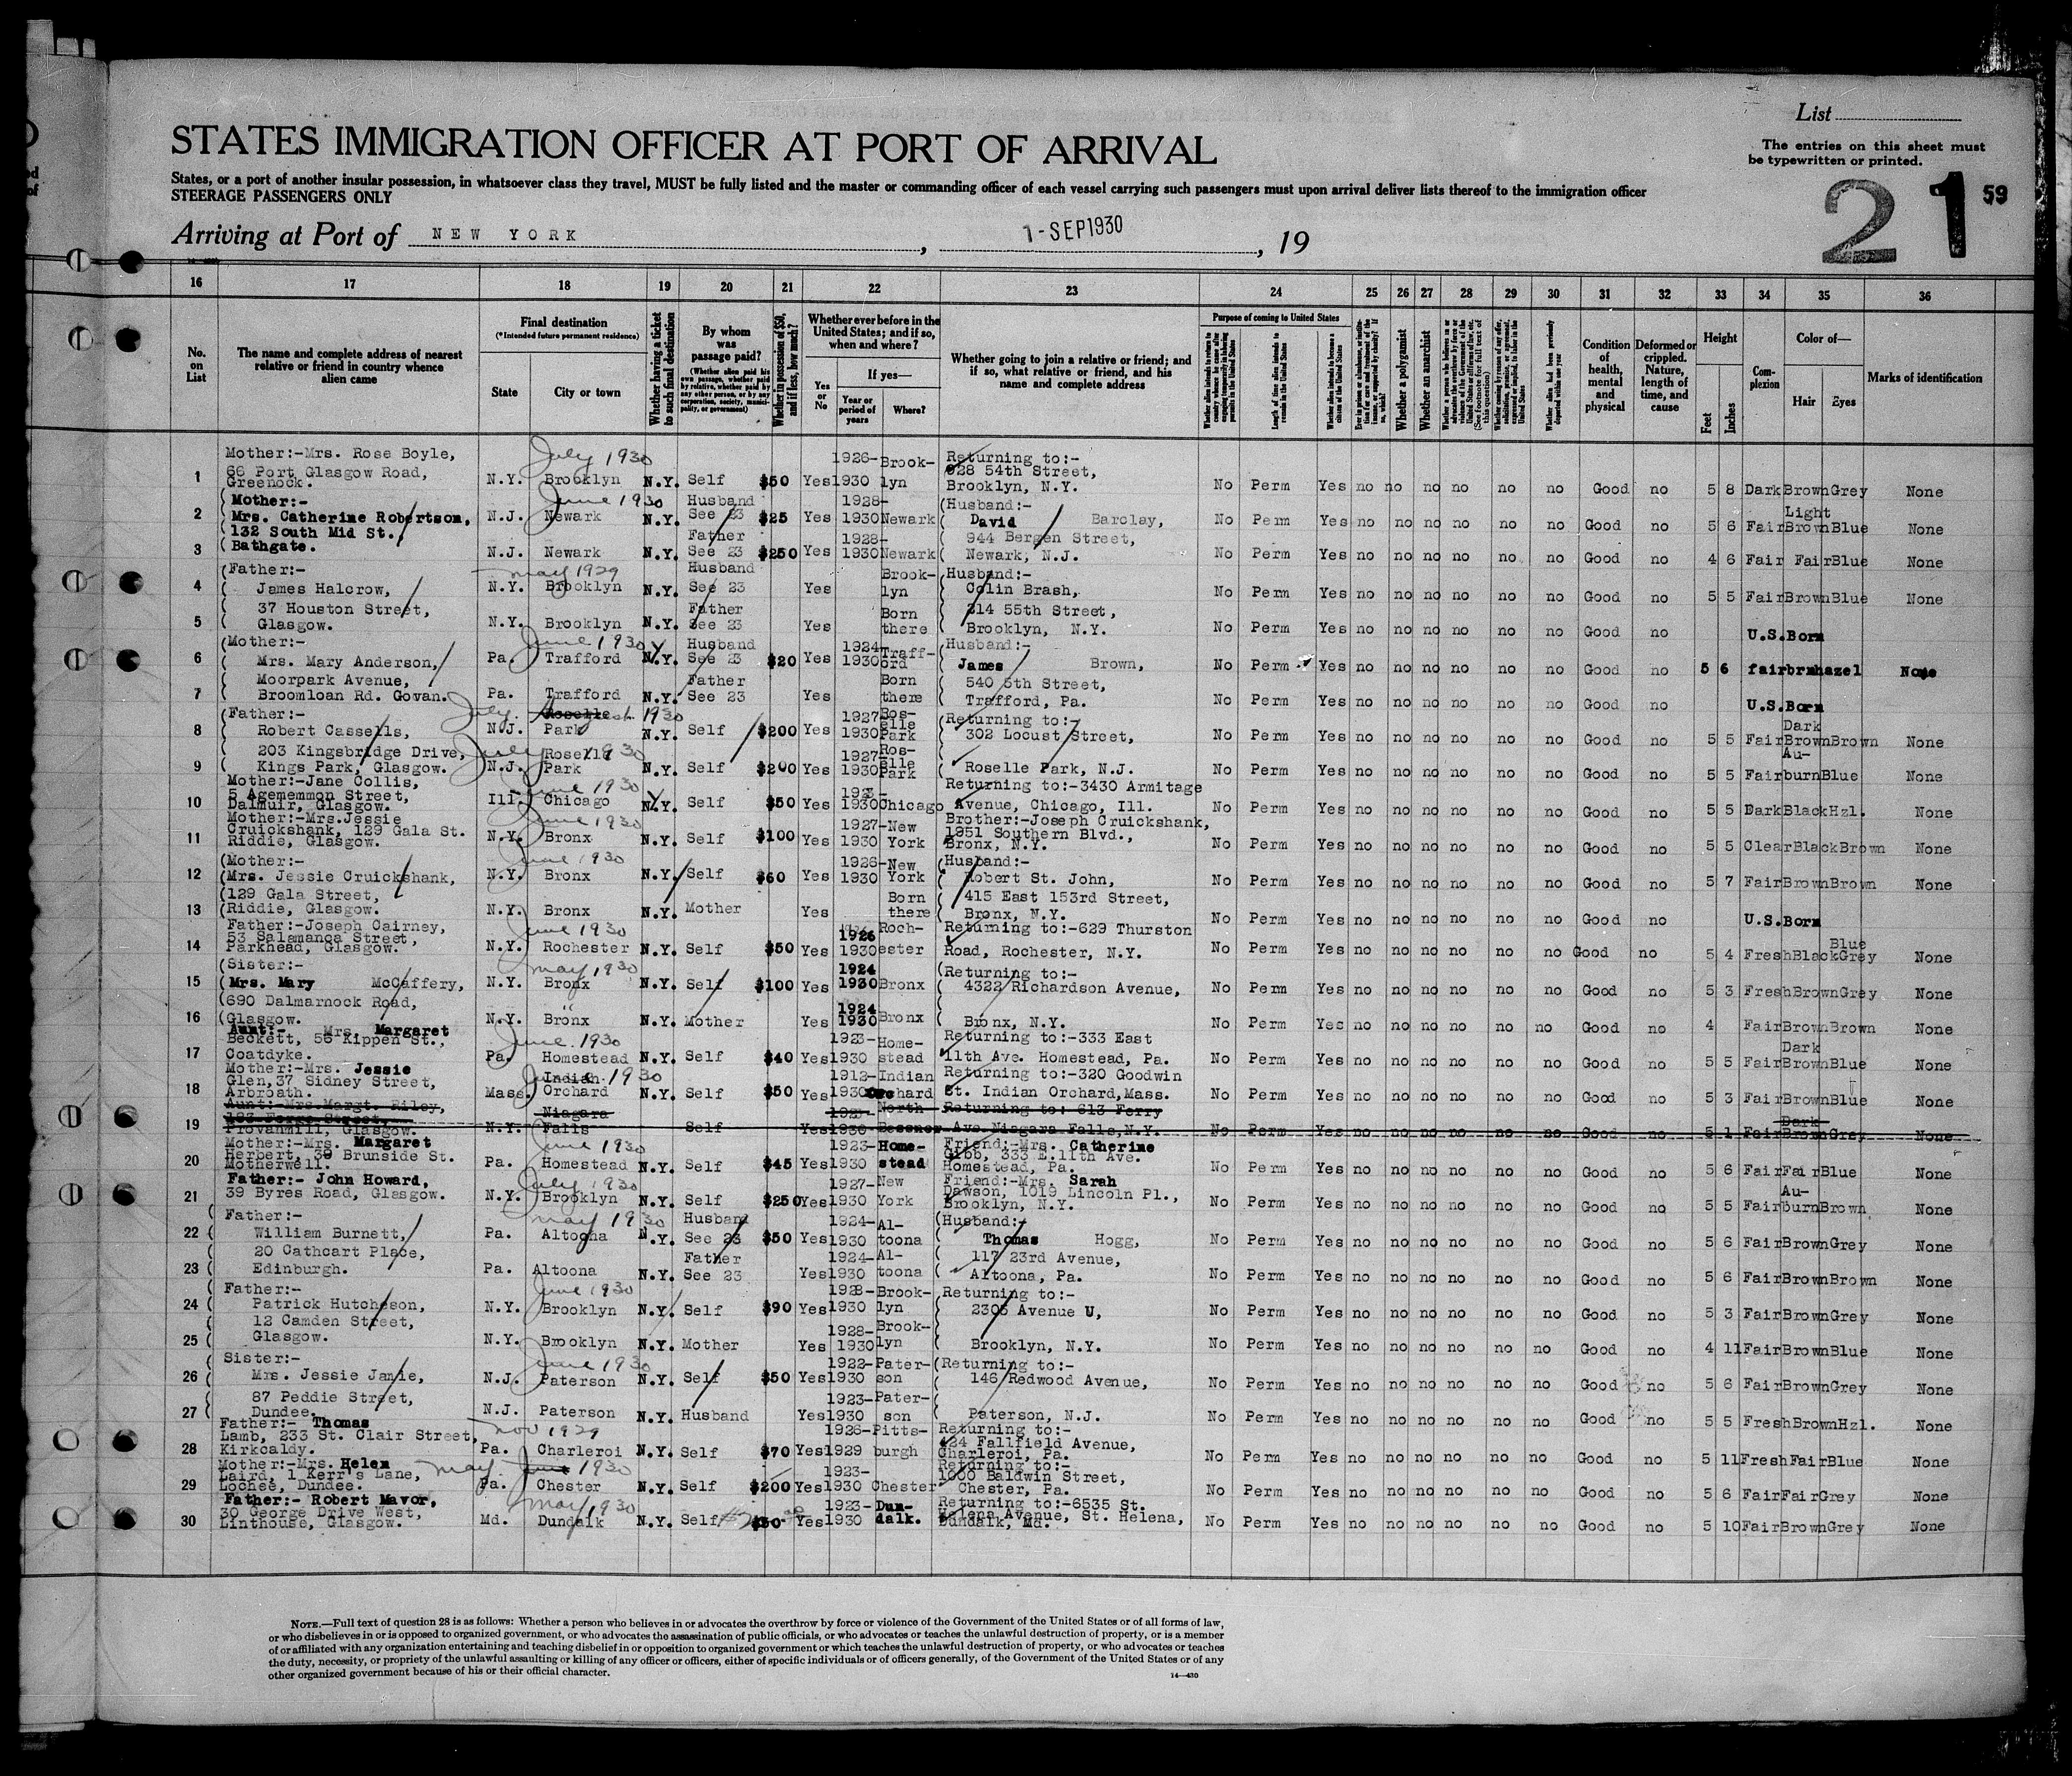 List
The entries on this sheet must
be typewritten or printed.
STATES IMMIGRATION OFFICER AT PORT OF ARRIVAL
States, or a port of another insular possession, in whatsoever class they travel, MUST be fully listed and the master or commanding officer of each vessel carrying such passengers must upon arrival deliver lists thereof to the immigration officer
STEERAGE PASSENGERS ONLY
21 59
Arriving at Port of NEW YORK, 1-SEP1930, 19
16 17 18 19 20 21 22 23 24 25 26 27 28 29 30 31 32 33 34 35 36
No. on List
The name and complete address of nearest relative or friend in country whence alien came
Final destination
(*Intended future permanent residence)
State City or town
Whether having a ticket to such final destination
By whom was passage paid?
(Whether alien paid his own passage, whether paid by relative, whether paid by any other person, or by any corporation, society, municipality, or government)
Whether in possession of $50, and if less, how much?
Whether ever before in the United States; and if so, when and where?
Yes or No
If yes—
Year or period of years Where?
Whether going to join a relative or friend; and if so, what relative or friend, and his name and complete address
Purpose of coming to United States
Length of time alien intends to remain in the United States
Whether alien intends to become a citizen of the United States
Whether a polygamist
Whether an anarchist
Condition of health, mental and physical
Deformed or crippled. Nature, length of time, and cause
Height
Feet Inches
Complexion
Color of—
Hair Eyes
Marks of identification
1 Mother:-Mrs. Rose Boyle, 66 Port Glasgow Road, Greenock. N.Y. July 1930 Brooklyn N.Y. Self $50 Yes 1926-1930 Brooklyn Returning to:- 628 54th Street, Brooklyn, N.Y. No Perm Yes no no no no no no Good no 5 8 Dark Brown Grey None
2 (Mother:- Mrs. Catherine Robertson, N.J. June 1930 Newark N.Y. Husband See 23 $25 Yes 1928-1930 Newark (Husband:- David Barclay, No Perm Yes no no no no no no Good no 5 6 Fair Light Brown Blue None
3 132 South Mid St. Bathgate. N.J. Newark N.Y. Father See 23 $250 Yes 1928-1930 Newark 944 Bergen Street, Newark, N.J. No Perm Yes no no no no no no Good no 4 6 Fair Fair Blue None
4 (Father:- James Halcrow, N.Y. may 1929 Brooklyn N.Y. Husband See 23 Yes Brooklyn (Husband:- Colin Brash, No Perm Yes no no no no no no Good no 5 5 Fair Brown Blue None
5 37 Houston Street, Glasgow. N.Y. Brooklyn N.Y. Father See 23 Yes Born there 314 55th Street, Brooklyn, N.Y. No Perm Yes no no no no no no Good no U.S.Born
6 (Mother:- Mrs. Mary Anderson, Pa. June 1930 Trafford N.Y. Husband See 23 $20 Yes 1924-1930 Trafford Husband:- James Brown, No Perm Yes no no no no no no Good no 5 6 fair brn hazel None
7 Moorpark Avenue, Broomloan Rd. Govan. Pa. Trafford N.Y. Father See 23 Yes Born there 540 5th Street, Trafford, Pa. No Perm Yes no no no no no no Good no U.S.Born
8 (Father:- Robert Cassells, N.J. July 1930 Roselle Park N.Y. Self $200 Yes 1927 1930 Roselle Park (Returning to:- 302 Locust Street, No Perm Yes no no no no no no Good no 5 5 Fair Dark Brown Brown None
9 203 Kingsbridge Drive, Kings Park, Glasgow. N.J. July 1930 Roselle Park N.Y. Self $200 Yes 1927 1930 Roselle Park Roselle Park, N.J. No Perm Yes no no no no no no Good no 5 5 Fair Au-burn Blue None
10 Mother:-Jane Collis, 5 Agememmon Street, Dalmuir, Glasgow. Ill. June 1930 Chicago N.Y. Self $50 Yes 1930 Chicago Returning to:-3430 Armitage Avenue, Chicago, Ill. No Perm Yes no no no no no no Good no 5 5 Dark Black Hzl. None
11 Mother:-Mrs.Jessie Cruickshank, 129 Gala St. Riddie, Glasgow. N.Y. June 1930 Bronx N.Y. Self $100 Yes 1927-1930 New York Brother:-Joseph Cruickshank, 1951 Southern Blvd., Bronx, N.Y. No Perm Yes no no no no no no Good no 5 5 Clear Black Brown None
12 (Mother:- (Mrs. Jessie Cruickshank, N.Y. June 1930 Bronx N.Y. Self $60 Yes 1926-1930 New York (Husband:- Robert St. John, No Perm Yes no no no no no no Good no 5 7 Fair Brown Brown None
13 (129 Gala Street, (Riddie, Glasgow. N.Y. Bronx N.Y. Mother Yes Born there 415 East 153rd Street, Bronx, N.Y. No Perm Yes no no no no no no Good no U.S.Born
14 Father:-Joseph Cairney, 53 Salamanca Street, Parkhead, Glasgow. N.Y. June 1930 Rochester N.Y. Self $50 Yes 1926 1930 Rochester Returning to:-629 Thurston Road, Rochester, N.Y. No Perm Yes no no no no no no Good no 5 4 Fresh Black Blue Grey None
15 (Sister:- (Mrs. Mary McCaffery, N.Y. may 1930 Bronx N.Y. Self $100 Yes 1924 1930 Bronx (Returning to:- 4322 Richardson Avenue, No Perm Yes no no no no no no Good no 5 3 Fresh Brown Grey None
16 (690 Dalmarnock Road, (Glasgow. N.Y. " Bronx N.Y. Mother Yes 1924 1930 Bronx Bronx, N.Y. No Perm Yes no no no no no no Good no 4 Fair Brown Brown None
17 Aunt:- Mrs. Margaret Beckett, 56 Kippen St., Coatdyke. Pa. June 1930 Homestead N.Y. Self $40 Yes 1923-1930 Homestead Returning to:-333 East 11th Ave. Homestead, Pa. No Perm Yes no no no no no no Good no 5 5 Fair Dark Brown Blue None
18 Mother:-Mrs. Jessie Glen,37 Sidney Street, Arbroath. Mass. June 1930 Indian Orchard N.Y. Self $50 Yes 1912-1930 Indian Orchard Returning to:-320 Goodwin St. Indian Orchard,Mass. No Perm Yes no no no no no no Good no 5 3 Fair Brown Blue None
19 Aunt:-Mrs.Margt. Riley, Street, Provanmill, Glasgow. N.Y. Niagara Falls Self Yes 1930 North Returning to: 613 Ferry Ave.Niagara Falls,N.Y. No Perm Yes no no no no no no Good no 5 1 Fair Dark Brown Grey None
20 Mother:-Mrs. Margaret Herbert, 39 Brunside St. Motherwell. Pa. June 1930 Homestead N.Y. Self $45 Yes 1923-1930 Homestead Friend:-Mrs. Catherine Gibb, 333 E.11th Ave. Homestead, Pa. No Perm Yes no no no no no no Good no 5 6 Fair Fair Blue None
21 Father:- John Howard, 39 Byres Road, Glasgow. N.Y. July 1930 Brooklyn N.Y. Self $250 Yes 1927-1930 New York Friend:-Mrs. Sarah Dawson, 1019 Lincoln Pl., Brooklyn, N.Y. No Perm Yes no no no no no no Good no 5 5 Fair Au-burn Brown None
22 (Father:- William Burnett, Pa. may 1930 Altoona N.Y. Husband See 23 $50 Yes 1924-1930 Altoona (Husband:- Thomas Hogg, No Perm Yes no no no no no no Good no 5 6 Fair Brown Grey None
23 20 Cathcart Place, Edinburgh. Pa. Altoona N.Y. Father See 23 Yes 1924-1930 Altoona 117 23rd Avenue, Altoona, Pa. No Perm Yes no no no no no no Good no 5 6 Fair Brown Brown None
24 (Father:- Patrick Hutcheson, N.Y. June 1930 Brooklyn N.Y. Self $90 Yes 1928-1930 Brooklyn (Returning to:- 2305 Avenue U, No Perm Yes no no no no no no Good no 5 3 Fair Brown Grey None
25 12 Camden Street, Glasgow. N.Y. Brooklyn N.Y. Mother Yes 1928-1930 Brooklyn Brooklyn, N.Y. No Perm Yes no no no no no no Good no 4 11 Fair Brown Blue None
26 (Sister:- Mrs. Jessie Jamie, N.J. June 1930 Paterson N.Y. Self $50 Yes 1922-1930 Paterson (Returning to:- 146 Redwood Avenue, No Perm Yes no no no no no no Good no 5 6 Fair Brown Grey None
27 87 Peddie Street, Dundee. N.J. Paterson N.Y. Husband Yes 1923-1930 Paterson Paterson, N.J. No Perm Yes no no no no no no Good no 5 5 Fresh Brown Hzl. None
28 Father:- Thomas Lamb, 233 St. Clair Street, Kirkcaldy. Pa. nov 1929 Charleroi N.Y. Self $70 Yes 1926-1929 Pittsburgh Returning to:- 424 Fallfield Avenue, Charleroi, Pa. No Perm Yes no no no no no no Good no 5 11 Fresh Fair Blue None
29 Mother:-Mrs. Helen Laird, 1 Kerr's Lane, Lochee, Dundee. Pa. may June 1930 Chester N.Y. Self $200 Yes 1923-1930 Chester Returning to:- 1000 Baldwin Street, Chester, Pa. No Perm Yes no no no no no no Good no 5 6 Fair Fair Grey None
30 Father:- Robert Mavor, 30 George Drive West, Linthouse, Glasgow. Md. may 1930 Dundalk N.Y. Self $50 Yes 1923-1930 Dundalk. Returning to:-6535 St. Helena Avenue, St. Helena, Dundalk, Md. No Perm Yes no no no no no no Good no 5 10 Fair Brown Grey None
NOTE.—Full text of question 28 is as follows: Whether a person who believes in or advocates the overthrow by force or violence of the Government of the United States or of all forms of law,
or who disbelieves in or is opposed to organized government, or who advocates the assassination of public officials, or who advocates or teaches the unlawful destruction of property, or is a member
of or affiliated with any organization entertaining and teaching disbelief in or opposition to organized government or which teaches the unlawful destruction of property, or who advocates or teaches
the duty, necessity, or propriety of the unlawful assaulting or killing of any officer or officers, either of specific individuals or of officers generally, of the Government of the United States or of any
other organized government because of his or their official character.
14—430